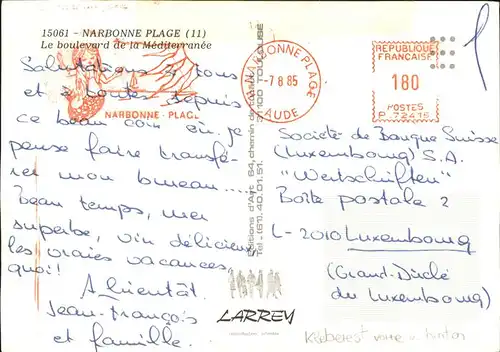 15061 - NARBONNE PLAGE (11)
Le boulevard de la Méditerranée
Salutations à tous
et à toutes depuis
ce beau coin où je
pense faire transfé-
rer mon bureau.....
Beau temps, mer
superbe, vin délicieux
les vraies vacances,
quoi!
A bientôt
Jean-François
et famille.
NARBONNE-PLAGE
NARBONNE PLAGE
-7 8 85
AUDE
REPUBLIQUE
FRANÇAISE
180
POSTES
P.72415
Editions d'Art
LARREY
64, chemin
31100 TOULOUSE
Tél. (61) 40.01.51.
Société de Banque Suisse
(Luxembourg) S.A.
"Wertschriften"
Boîte postale 2
L-2010 Luxembourg
(Grand-Duché
du Luxembourg)